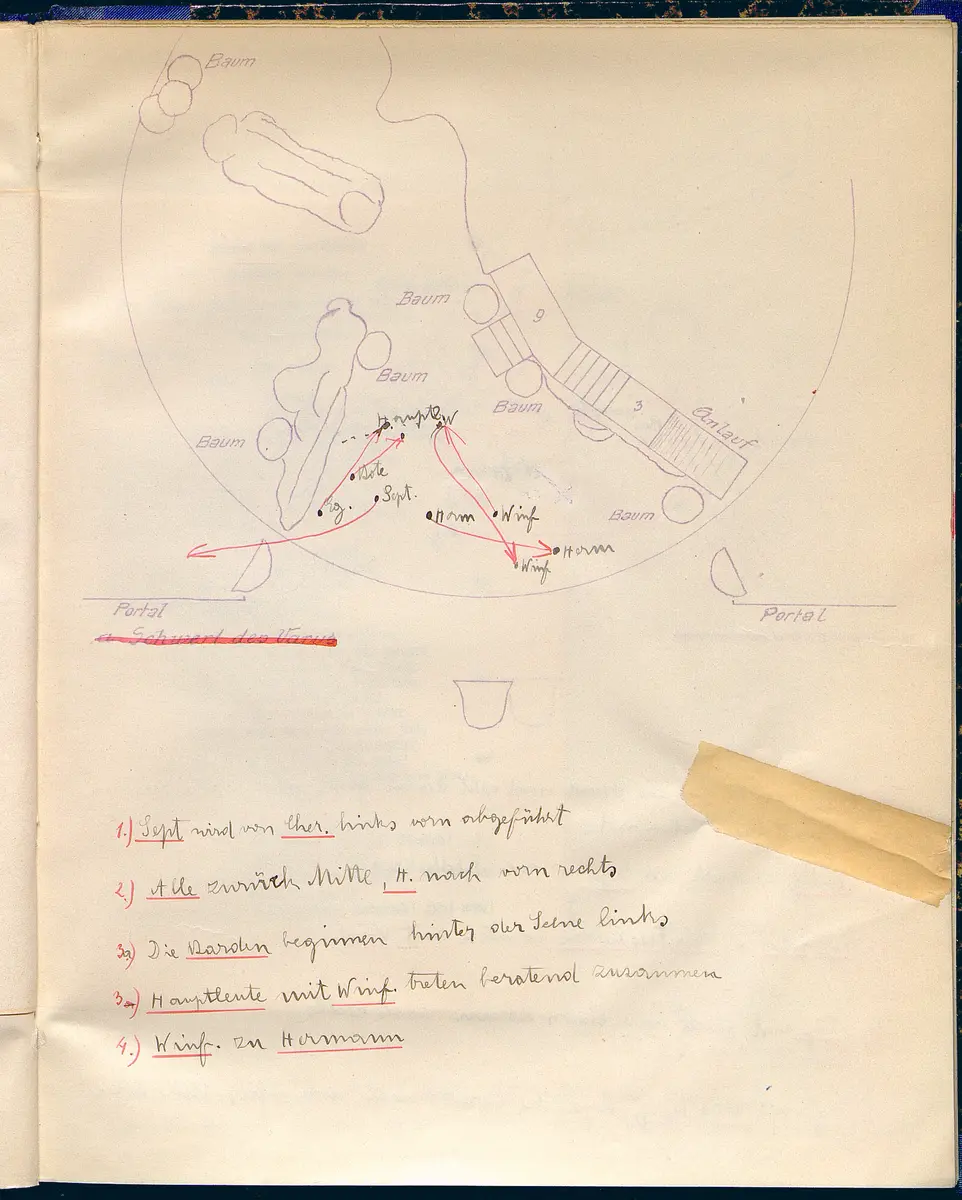 Baum
Baum
9
Baum
Baum
3
Anlauf
Hauptl. W
Baum
Bote
Eg.
Sept.
Herm
Winf
Baum
Herm
Winf
Portal
Portal
a Schwert des Varus
1.) Sept wird von Cher. links vorn abgeführt
2.) Alle zurück Mitte, H. nach vorn rechts
3a) Die Barden beginnen hinter der Scene links
3.) Hauptleute mit Winf. treten beratend zusammen
4.) Winf. zu Hermann